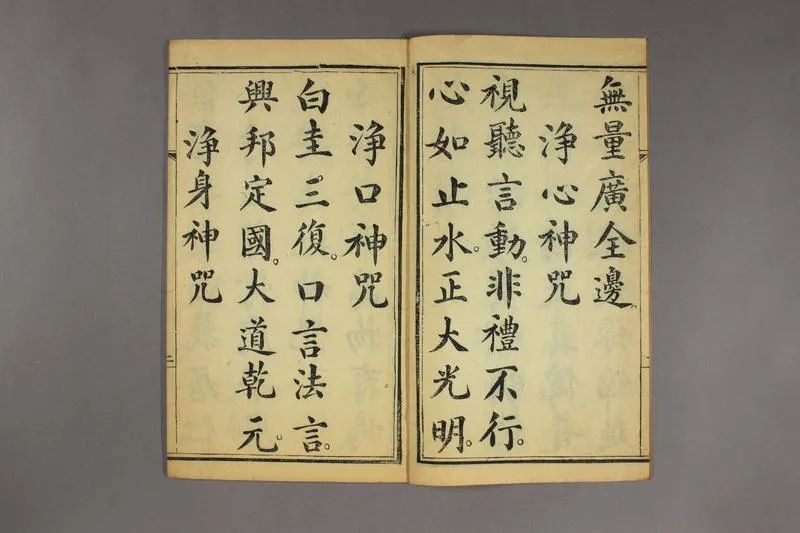 無量廣全邊
淨心神咒
視聽言動。非禮不行。
心如止水。正大光明。
淨口神咒
白圭三復。口言法言。
興邦定國。大道乾元。
淨身神咒
二